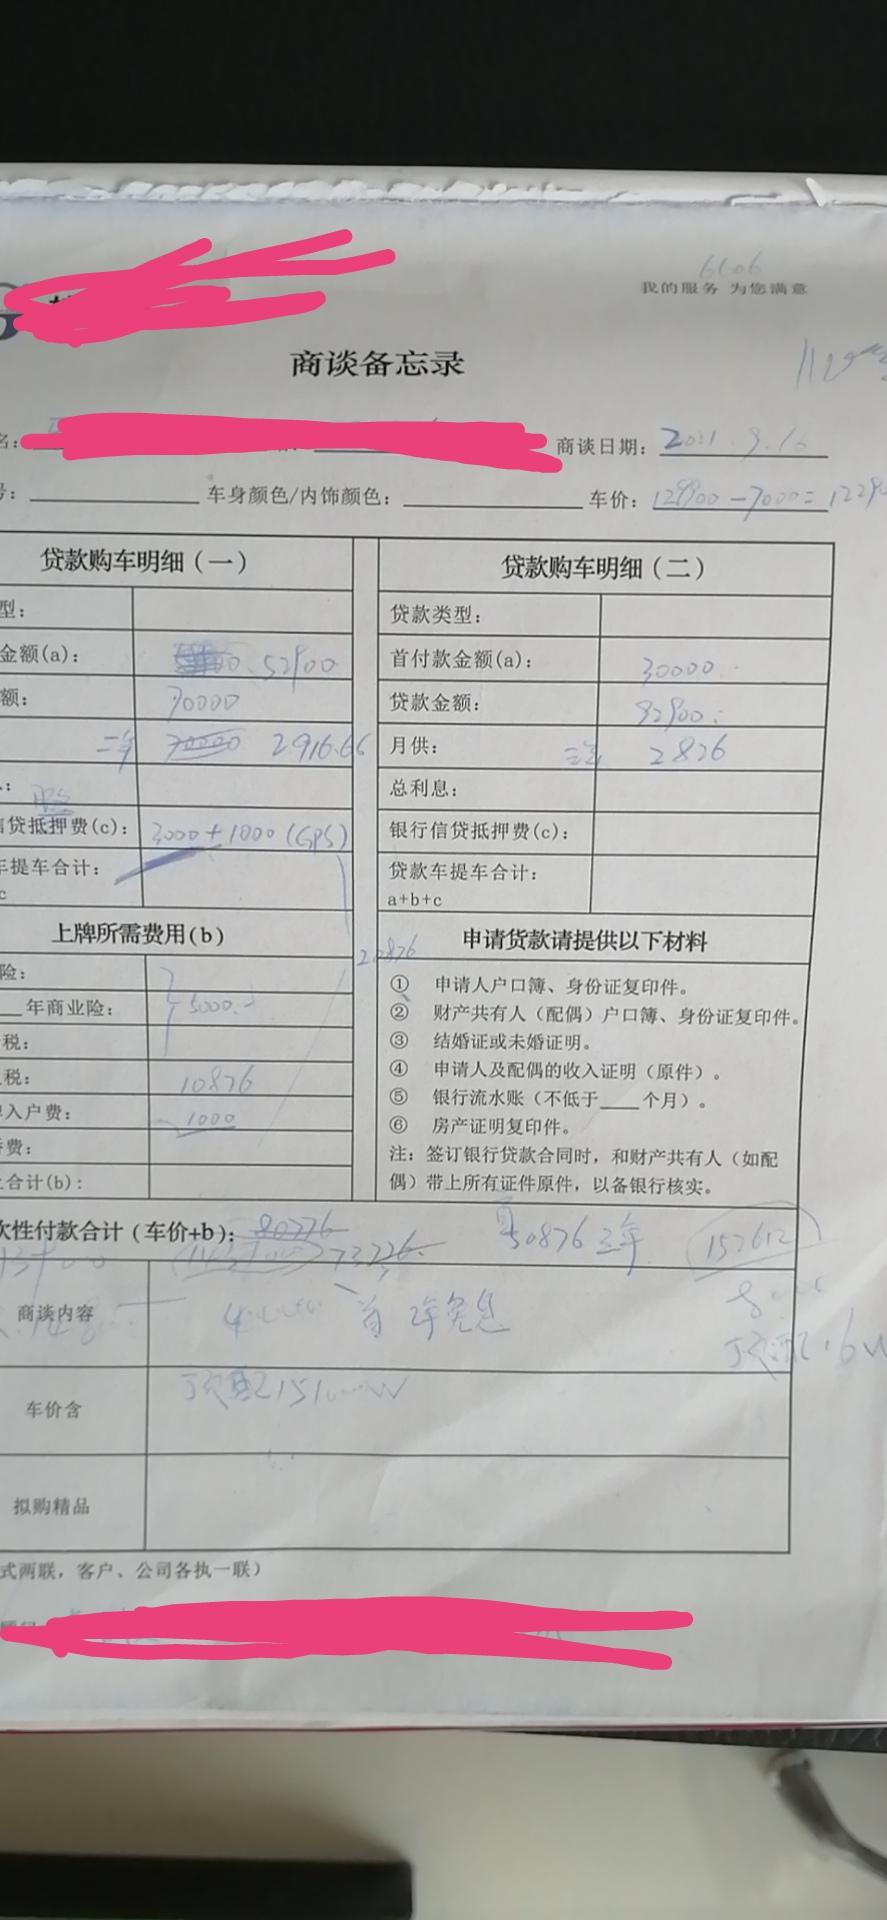 6606
我的服务 为您满意
商谈备忘录
名： 商谈日期：2021.9.16
号： 车身颜色/内饰颜色： 车价：129900-7000=1229
贷款购车明细（一） 贷款购车明细（二）
型： 贷款类型：
金额(a)： 52900 首付款金额(a)： 30000
额： 70000 贷款金额： 92900
二年 2916.66 月供： 三年 2826
总利息：
信贷抵押费(c)： 3000+1000(GPS) 银行信贷抵押费(c)：
车提车合计： 贷款车提车合计：
c a+b+c
上牌所需费用(b) 申请货款请提供以下材料
20876
险： ① 申请人户口簿、身份证复印件。
年商业险： 5000 ② 财产共有人（配偶）户口簿、身份证复印件。
税： ③ 结婚证或未婚证明。
税： 10876 ④ 申请人及配偶的收入证明（原件）。
入户费： 1000 ⑤ 银行流水账（不低于____个月）。
费： ⑥ 房产证明复印件。
合计(b)： 注：签订银行贷款合同时，和财产共有人（如配
偶）带上所有证件原件，以备银行核实。
次性付款合计（车价+b)： 80776 50876 三年 152612
73776
商谈内容 首 2年免息
车价含 顶配15
顶配 16W
拟购精品
式两联，客户、公司各执一联）